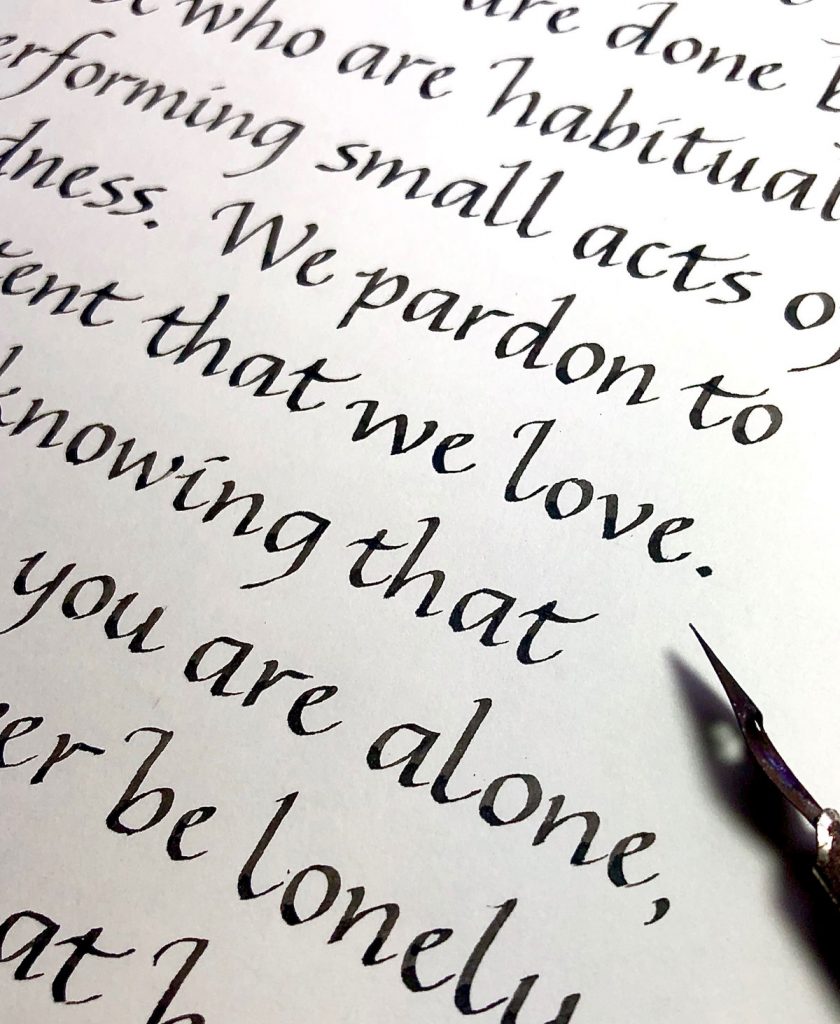 are done
who are habitual
erforming small acts of
dness. We pardon to
ent that we love.
knowing that
you are alone,
er be lonely
at